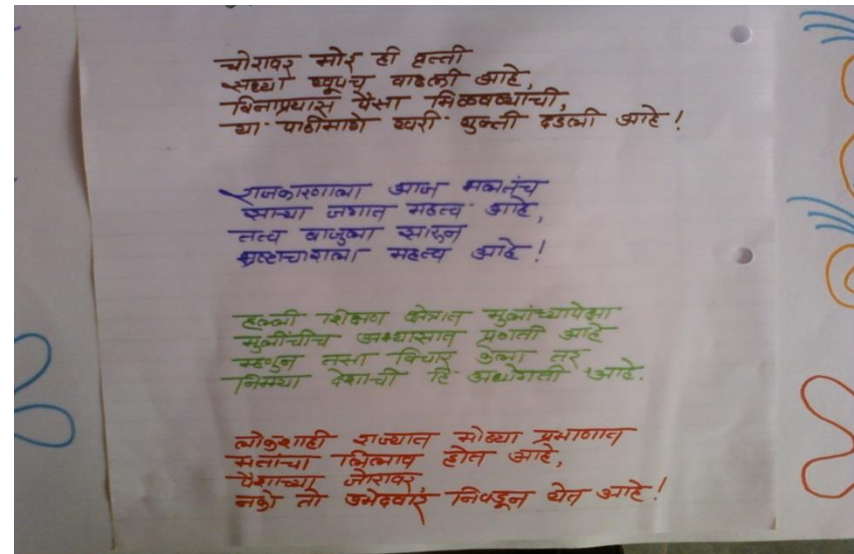 चोरावर मोर ही वृत्ती
सध्या खूपच वाढली आहे,
विनाप्रयास पैसा मिळवण्याची,
या पाठीमागे खरी युक्ती दडली आहे!
राजकारणाला आज भलतंच
साऱ्या जगात महत्व आहे,
तत्व बाजुला सारून
भ्रष्टाचाराला महत्व आहे!
हल्ली शिक्षण क्षेत्रात मुलांच्यापेक्षा
मुलींचीच अभ्यासात प्रगती आहे
म्हणुन तसा विचार केला तर
निम्म्या देशाची हि अधोगती आहे.
लोकशाही राज्यात मोठ्या प्रमाणात
मतांचा लिलाव होत आहे,
पैशाच्या जोरावर
नको तो उमेदवार निवडून येत आहे!